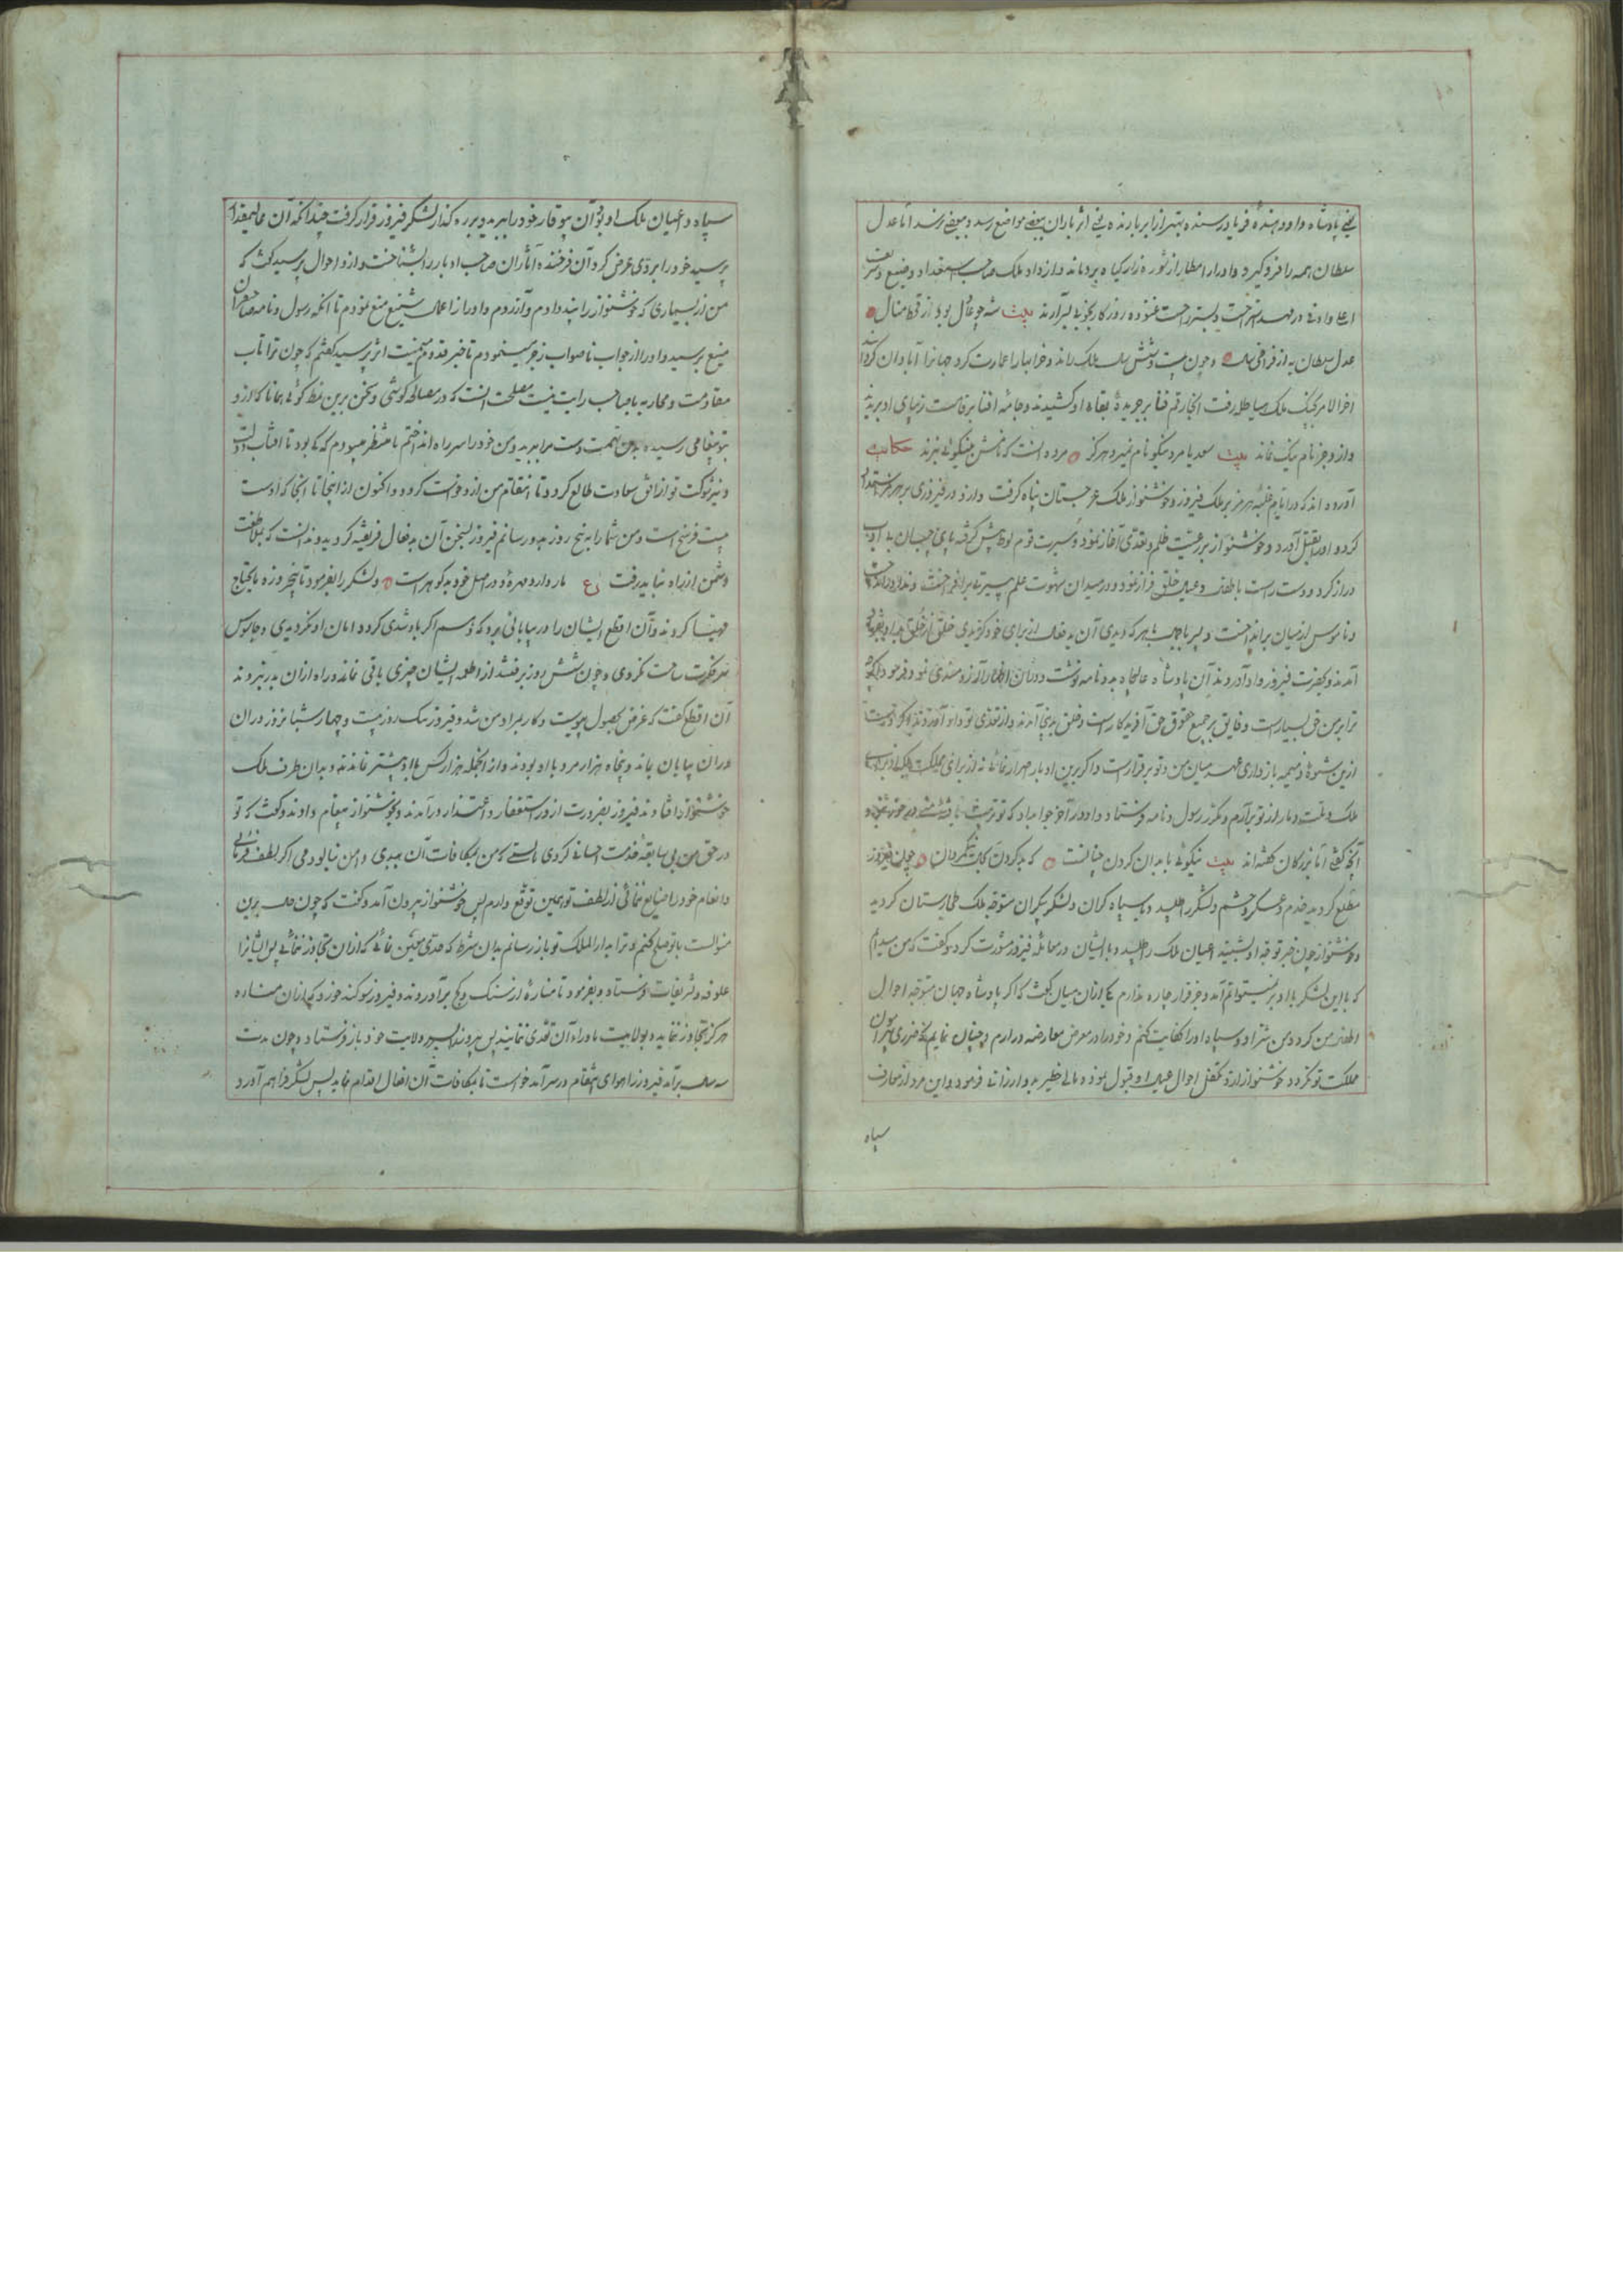 یعنی پادشاه داد دهنده فریاد رسنده بهتر از ابر بارنده یعنی اثر باران ببعضی مواضع رسد و ببعضی نرسد اما عدل
سلطان همه را فرو گیرد و ادرار امطار از شوره زار گیاه برویاند و از داد ملک صاحب استعداد وضیع و شریف
اعلی و ادنی در مهد استراحت و بستر راحت غنوده روزگار بخوبی بسر آرند بیت شه چو عادل بود ز قحط منال
عدل سلطان به از فراخی سال و چون بیست و شش سال ملک راند و خرابیها را عمارت کرد و جهانرا آبادان گردانید
آخر الامر بجنگ ملک هیاطله رفت آنجا رقم فنا بر جریده بقای او کشیدند و جامه افنا بر قامت زیبای او بریدند
و ازو جز نام نیک نماند بیت سعدیا مرد نیکو نام نمیرد هرگز مرده آنست که نامش بنیکوئی نبرند حکایت
آورده اند که در ایام غلبه هرمز بر ملک فیروز و خوشنواز ملک غرجستان پناه گرفت و ازو در فیروزی بر هرمز استمداد
کرد و او را بقتل آورد و خوشنواز بر رعیت ظلم و تعدی آغاز نمود و سیرت قوم لوط پیش گرفته پای چسبان بی ادب
دراز کرد و دست راست باطفال و عیال خلق فراز نمود و در میدان شهوت علم بی سیرتی برافراخت
و ناموس از میان برانداخت و پسر با جمال با هر که دیدی آن بد فعال از برای خود گزیدی خلق از خلق بد او بفریاد
آمدند و بحضرت فیروز داد آوردند آن پادشاه عالیجاه بدو نامه نوشت و در آن اظهار آرزومندی نمود
ترا بر من حق بسیارست و فایق بر جمیع حقوق حق آفریدگارست و خلق بفریاد آمدند و از تعدی تو داد آوردند اگر تو دست
ازین شیوه ذمیمه بازداری عهد میان من و تو برقرارست و اگر برین ادبار اصرار نمائی
ملک و ملت دمار از تو برآرم و مکرر رسول و نامه فرستاد و او در آخر جواب داد که
آنچه گفتی اما بزرگان گفته اند بیت نیکوئی با بدان کردن چنانست که بد کردن بجای نیکمردان چون فیروز
مطلع گردید خدم و عسکر و حشم و لشکر را طلبید و با سپاه گران و لشکر بیکران متوجه ملک طخارستان گردید
و خوشنواز چون خبر توجه او بشنید اعیان ملک را طلبید و با ایشان در معامله فیروز مشورت کرد و گفت که من میدانم
که با این لشکر با او بر نمیتوانم آمد و جز فرار چاره ندارم یکی از آن میان گفت که اگر پادشاه جهان متوجه احوال
اطفال من گردد من شر او و سپاه او را کفایت کنم و خود را در معرض معارضه در آرم و چنان نمایم که ضرری پیرامون
مملکت تو نگردد خوشنواز ازو تکفل احوال عیال او قبول نموده مالی خطیر بدو ارزانی فرمود و این مرد از معارف
سپاه
سپاه و اعیان ملک او بود آن بیوقار خود را ببرید و بر ره گذار لشکر فیروز قرار گرفت چندانکه آن عالیمقدار
پرسید خود را بروی عرض کرد آن فرخنده آثار آن صاحب ادبار را بشناخت و ازو احوال پرسید گفت که
من از بسیاری که خوشنواز را پند دادم و آزردم و او را از اعمال شنیع منع نمودم تا آنکه رسول و نامه صاحبقران
منیع برسید و او را از جواب ناصواب زجر مینمودم تا خبر قدوم میمنت اثر پرسید گفتم که چون ترا تاب
مقاومت و محاربه با صاحب رایت نیست مصلحت آنست که در مصالحه کوشی و سخن برین نمط گوئی همانا که از و
بتو پیغامی رسیده بدین تهمت دست مرا ببرید و من خود را بسر راه انداختم تا منتظر میبودم که کی بود تا آفتاب دولت
و نیر شوکت تو از افق سعادت طالع گردد تا انتقام من ازو خواست گردد و اکنون از اینجا تا آنجا که اوست
بیست فرسخ است و من شما را به پنج روز بدو رسانم فیروز بسخن آن بد فعال فریفته گردید و ندانست که بملاطفت
دشمن از راه نباید رفت ع مار دارد مهره و در اصل خود بد گوهر است و لشکر را بفرمود تا پنجروزه مایحتاج
مهیا کردند و آن اقطع ایشان را در بیابانی برد که وهم اگر باد شدی گرد دامان او نگردیدی و جاسوس
فکرت ساحت نکردی و چون شش روز برفتند از اطعمه ایشان چیزی باقی نماند و راه از آن بدر نبردند
آن اقطع گفت که غرض بحصول پیوست و کار بمراد من شد و فیروز یک روز بیست و چهار شبانروز در آن
در آن بیابان بماند و پنجاه هزار مرد با او بودند و از آنجمله هزار کس با او بیشتر نماندند و بدان طرف ملک
خوشنواز افتادند فیروز بضرورت از در استغفار و اعتذار درآمدند و بخوشنواز پیغام دادند و گفت که تو
در حق من بی سابقه خدمت احسانی کردی بایستی که من بمکافات آن بدی دامن نیالودمی اکر لطف فرمائی
و انعام خود را ضایع ننمائی از لطف تو همین توقع دارم پس خوشنواز بیرون آمد و گفت که چون حال برین
منوالست با تو صلح کنم و ترا بدار الملک تو باز رسانم بدان شرط که حدی معین نمائی که از آن تجاوز ننمائی پس ایشانرا
علوفه و تشریفات فرستاد و بفرمود تا مناره از سنگ و گچ برآوردند و فیروز سوگند خورد که از آن مناره
هرگز تجاوز ننماید و بولایت ماوراء آن تعدی ننمایند پس پیروز را بسر ولایت خود باز فرستاد و چون مدت
سه سال برآمد فیروز را هوای انتقام در سر آمد خواست تا بمکافات آن افعال اقدام نماید پس لشکر فراهم آورد